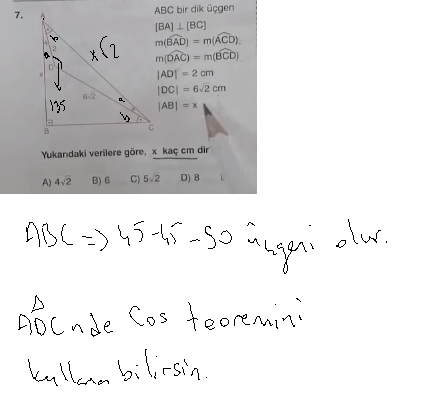 7.
ABC bir dik üçgen
[BA] ⊥ [BC]
m(BAD) = m(ACD)
m(DAC) = m(BCD)
|AD| = 2 cm
|DC| = 6√2 cm
|AB| = x
A
x√2
2
D
x
135
6√2
a
b
B
C
Yukarıdaki verilere göre, x kaç cm dir
A) 4√2 B) 6 C) 5√2 D) 8
ABC => 45-45-90 üçgeni olur.
ADC nde Cos teoremini
kullanabilirsin.